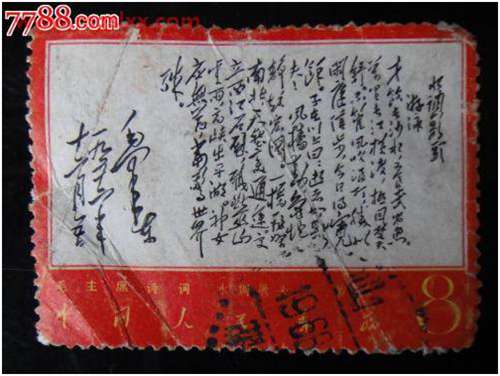 7788.com
水调歌头
游泳
才饮长沙水又食武昌鱼
万里长江横渡极目楚天
舒不管风吹浪打胜似
闲庭信步今日得宽余
子在川上曰逝者如斯
夫风樯动龟蛇静
起宏图一桥飞架
南北天堑变通途更
立西江石壁截断巫山
云雨高峡出平湖神女
应无恙当惊世界
殊
毛泽东
一九五六年
十二月五日
毛主席诗词
中国人民邮政
8